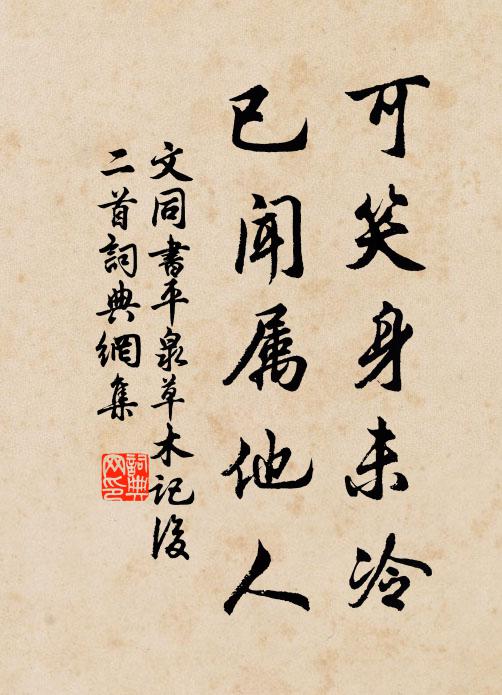 可笑身未冷
已闻属他人
文同書平泉草木记後
二首詞典網集
詞典网印